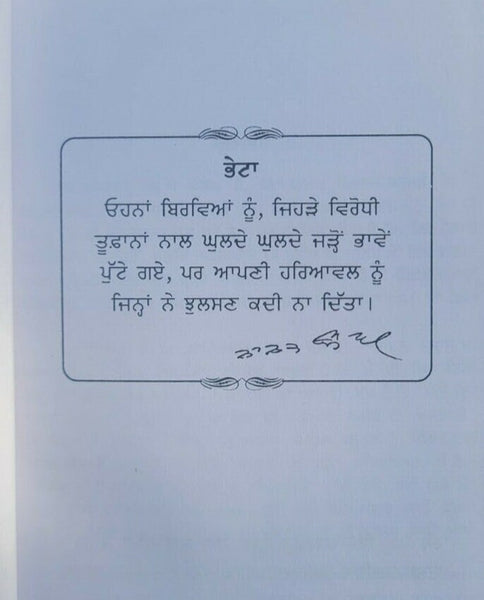 ਭੇਟਾ
ਓਹਨਾਂ ਬਿਰਵਿਆਂ ਨੂੰ, ਜਿਹੜੇ ਵਿਰੋਧੀ
ਤੂਫ਼ਾਨਾਂ ਨਾਲ ਘੁਲਦੇ ਘੁਲਦੇ ਜੜ੍ਹੋਂ ਭਾਵੇਂ
ਪੁੱਟੇ ਗਏ, ਪਰ ਆਪਣੀ ਹਰਿਆਵਲ ਨੂੰ
ਜਿਨ੍ਹਾਂ ਨੇ ਝੁਲਸਣ ਕਦੀ ਨਾ ਦਿੱਤਾ।
ਨਾਨਕ ਸਿੰਘ